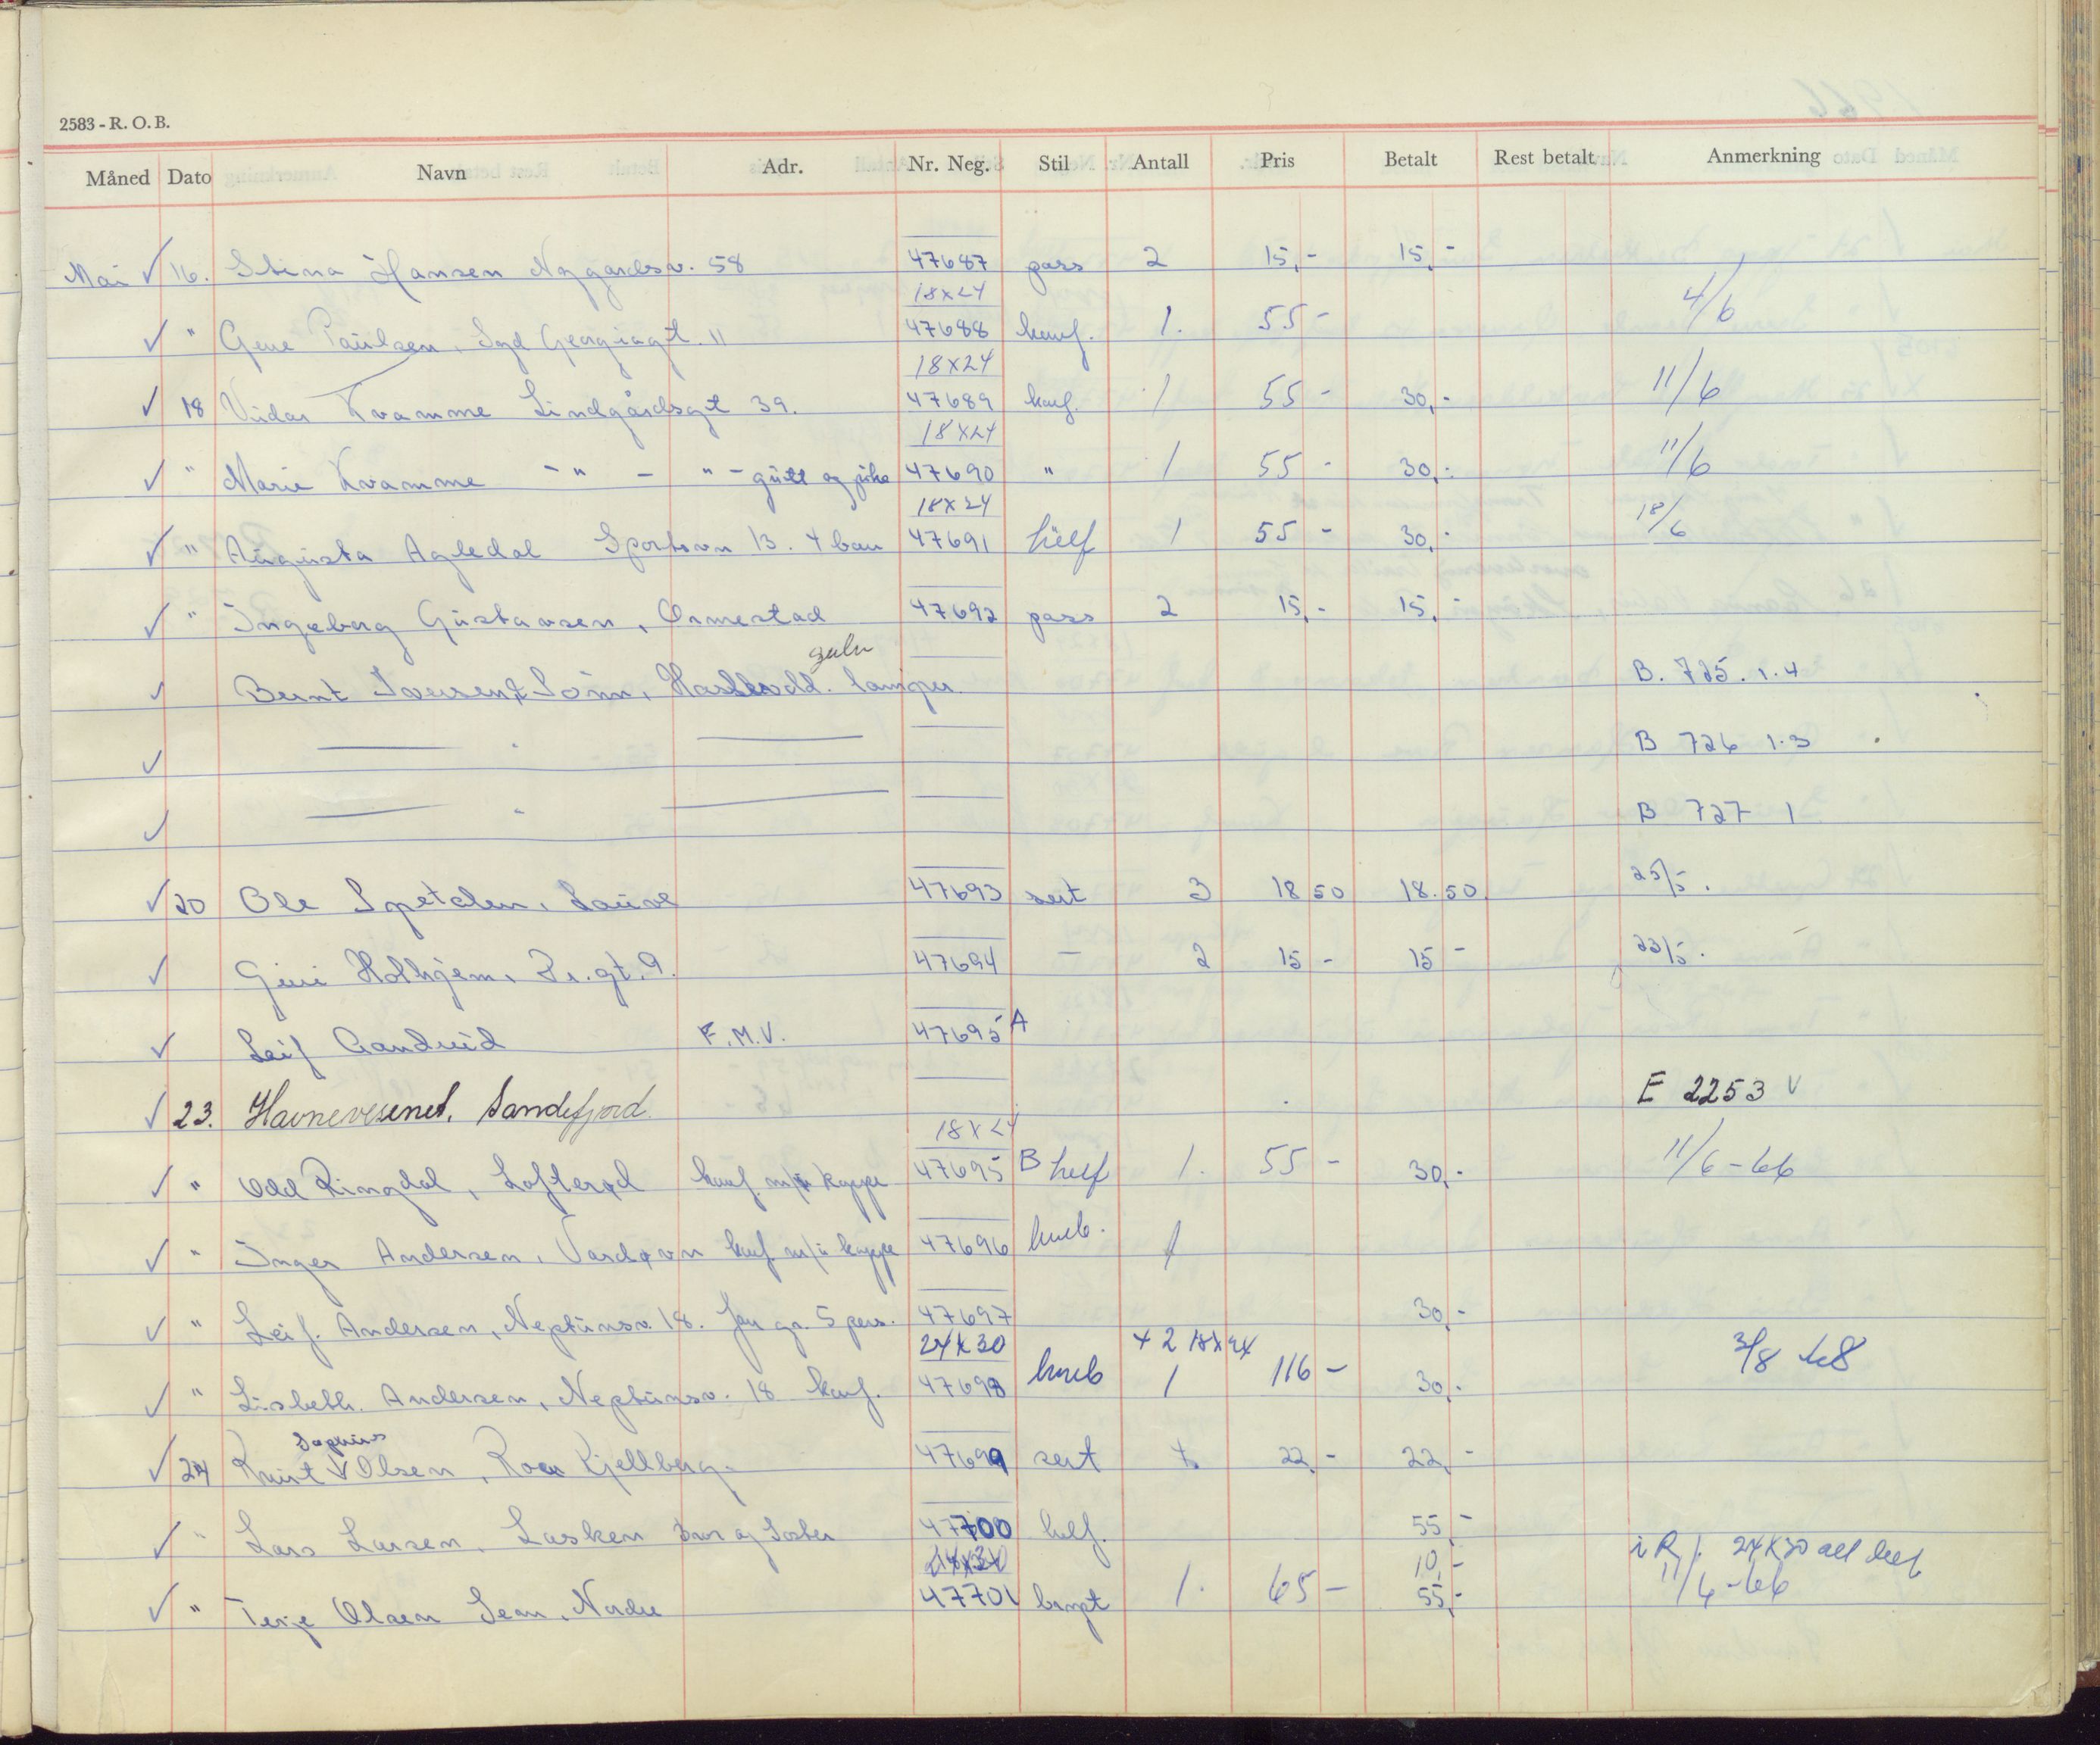 2583 - R. O. B.
Måned Dato Navn Adr. Nr. Neg. Stil Antall Pris Betalt Rest betalt Anmerkning
Mai ✓ 16. Stina Hansen Nygårdsv. 58 47687 pass 2 15,- 15,-
18x24
✓ " Paulsen, 11 47688 konf. 1. 55 - 4/6
18x24
✓ 18 Vidar Kvamme Lindgårdsgt 39. 47689 konf. 1 55 - 30,- 11/6
18x24
✓ " Marie Kvamme - " - " - gutt og pike 47690 " 1 55 - 30,- 11/6
18x24
✓ " Augusta Agledal Sportsvn 13. 4 barn 47691 helf 1 55 - 30,- 18/6
✓ " Ingeborg Gustavsen, Ormestad 47692 pass 2 15,- 15,-
gulv
✓ Bernt Iversen & Sønn, lamper B. 725. 1.4
✓ — " — B 726 1.3
✓ — " — B 727 1
✓ 20 Ole Spetalen, 47693 sert 3 18 50 18.50 25/5.
✓ Holhjem, Pr.gt. 9. 47694 — 2 15 - 15 - 23/5.
✓ Leif F.M.V. 47695 A
✓ 23. Havnevesenet, Sandefjord. E 2253 V
18x24
✓ " Odd Ringdal, Lofterød konf. m/u kappe 47695 B helf 1. 55 - 30,- 11/6-66
✓ " Inger Andersen, Vardevn konf m/u kappe 47696 1
✓ " Leif. Andersen, Neptunsv. 18. fam gr. 5 pers. 47697 30,-
24x30 + 2 18x24
✓ " Lisbeth. Andersen, Neptunsv. 18 konf. 47698 1 116 - 30,- 3/8 68
Sophus
✓ 24 Knut V Olsen, Kjellberg. 47699 sert 4. 22,- 22,-
✓ " Lars Larsen, Lasken bror og søster 47700 helf. 55,-
10,- 24x30
✓ " Terje Olsen Sem, Nordre 47701 brypt 1. 65 - 55,- 11/6-66